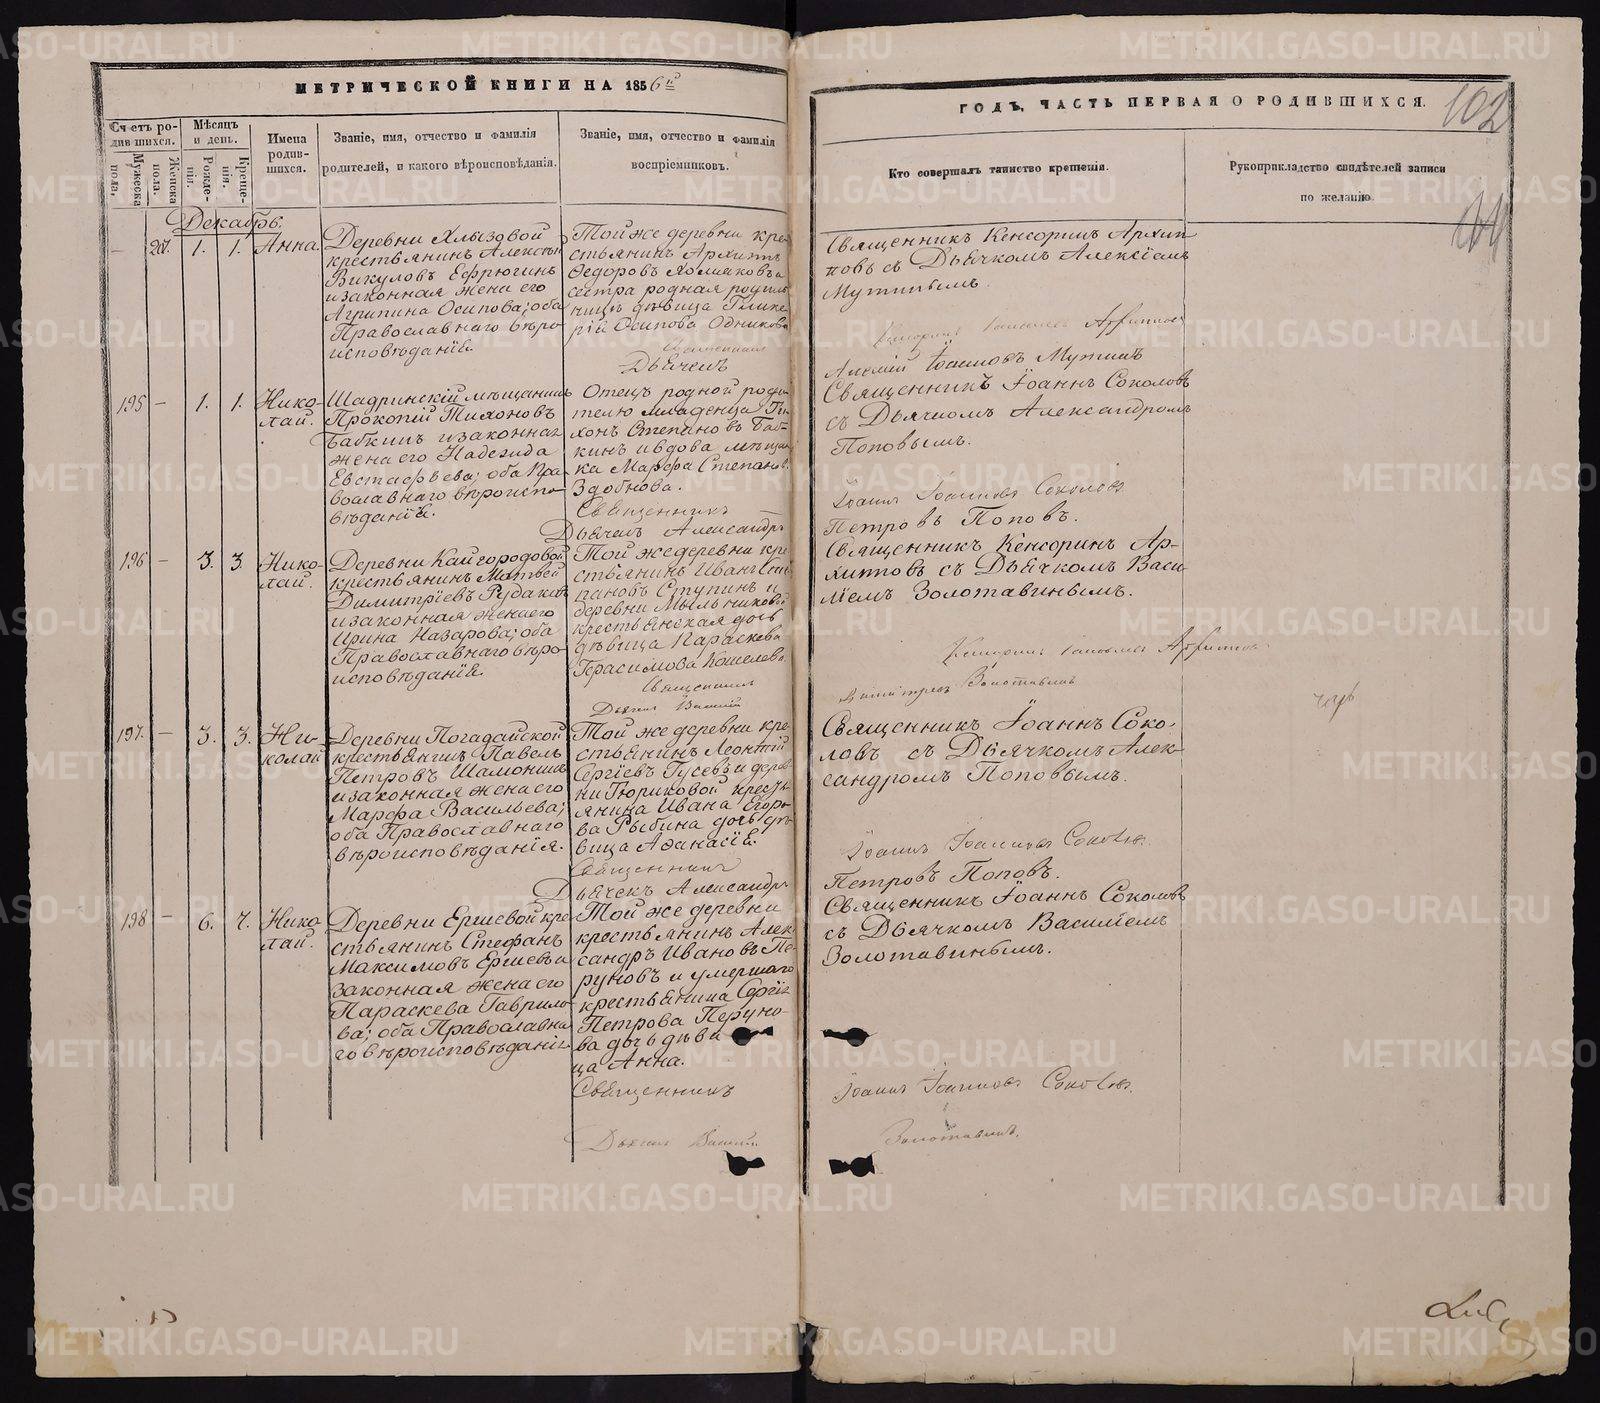 МЕТРИЧЕСКОЙ КНИГИ НА 1856й
Счетъ родившихся.
Мужеска пола.
Женска пола.
Мѣсяцъ и день.
Рожденія.
Крещенія.
Имена родившихся.
Званіе, имя, отчество и фамилія
родителей, и какого вѣроисповѣданія.
Званіе, имя, отчество и фамилія
воспріемниковъ.
Декабрь.
1. 1. Анна.
Деревни Хлызовой
крестьянинъ Алексѣй
Викуловъ Ефрюгинъ
и законная жена его
Агрипина Осипова; оба
Православнаго вѣро-
исповѣданія.
Той же деревни кре-
стьянинъ Архиппъ
Ѳедоровъ Хомяковъ и
сестра родная родиль-
ницѣ дѣвица Глике-
рія Осипова
Священникъ
Дьячекъ
195 — 1. 1. Нико-
лай.
Шадринскій мѣщанинъ
Прокопій Тихоновъ
Бабкинъ и законная
жена его Надежда
Евстафьева; оба Пра-
вославнаго вѣроиспо-
вѣданія.
Отецъ родной роди-
телю младенца Ти-
хонъ Степановъ Баб-
кинъ и вдова мѣщан-
ка Марфа Степанов.
Здобнова.
Священникъ
Дьячекъ Александръ
196 — 3. 3. Нико-
лай.
Деревни Кайгородовой
крестьянинъ Матвѣй
Димитріевъ Рудаковъ
и законная жена его
Ирина Назарова; оба
Православнаго вѣро-
исповѣданія.
Той же деревни кре-
стьянинъ Иванъ Сте-
пановъ Ступинъ и
деревни Мыльниковой
крестьянская дочь
дѣвица Параскева
Герасимова Кошелева.
Священникъ
Дьячекъ Василій
197. — 3. 3. Ни-
колай
Деревни Погадайской
крестьянинъ Павелъ
Петровъ Шамонинъ
и законная жена его
Марфа Васильева;
оба Православнаго
вѣроисповѣданія.
Той же деревни кре-
стьянинъ Леонтій
Сергіевъ Гусевъ и дерев-
ни Тюриковой кресть-
янина Ивана Егоро-
ва Рыбина дочь дѣ-
вица Аѳанасія.
Священникъ
Дьячекъ Александръ
198 — 6. 7. Нико-
лай.
Деревни Ершевой кре-
стьянинъ Стефанъ
Максимовъ Ершевъ и
законная жена его
Параскева Гаврило-
ва; оба Православна-
го вѣроисповѣданія.
Той же деревни
крестьянинъ Алек-
сандръ Ивановъ Пе-
руновъ и умершаго
крестьянина Сергія
Петрова Перуно-
ва дочь дѣви-
ца Анна.
Священникъ
Дьячекъ Василій
ГОДЪ, ЧАСТЬ ПЕРВАЯ О РОДИВШИХСЯ.
102
Кто совершалъ таинство крещенія.
Рукоприкладство свидѣтелей записи
по желанію.
Священникъ Кенсоринъ Архип-
повъ съ Дьячкомъ Алексіемъ
Мутинымъ.
Алексій Іоанновъ Мутинъ
Священникъ Іоаннъ Соколовъ
съ Дьячкомъ Александромъ
Поповымъ.
Іоаннъ Іоанновъ Соколовъ
Петровъ Поповъ.
Священникъ Кенсоринъ Ар-
хипповъ съ Дьячкомъ Васи-
ліемъ Золотавинымъ.
Золотавинъ
Священникъ Іоаннъ Соко-
ловъ съ Дьячкомъ Алек-
сандромъ Поповымъ.
Іоаннъ Іоанновъ Соколовъ.
Петровъ Поповъ.
Священникъ Іоаннъ Соколовъ
съ Дьячкомъ Василіемъ
Золотавинымъ.
Іоаннъ Іоанновъ Соколовъ.
Золотавинъ.
METRIKI.GASO-URAL.RU